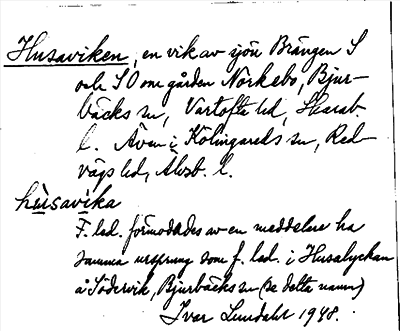 Husaviken, en vik av sjön Brängen S
och SO om gården Nörkebo, Bjur-
bäcks sn, Vartofta hd, Skarab.
l. Även i Kölingareds sn, Red-
vägs hd, Älvsb. l.
hùsavika
F. led. förmodades av en meddelare ha
samma ursprung som f. led. i Husalyckan
å Södervik, Bjurbäcks sn (se detta namn)
Ivar Lundahl 1948.